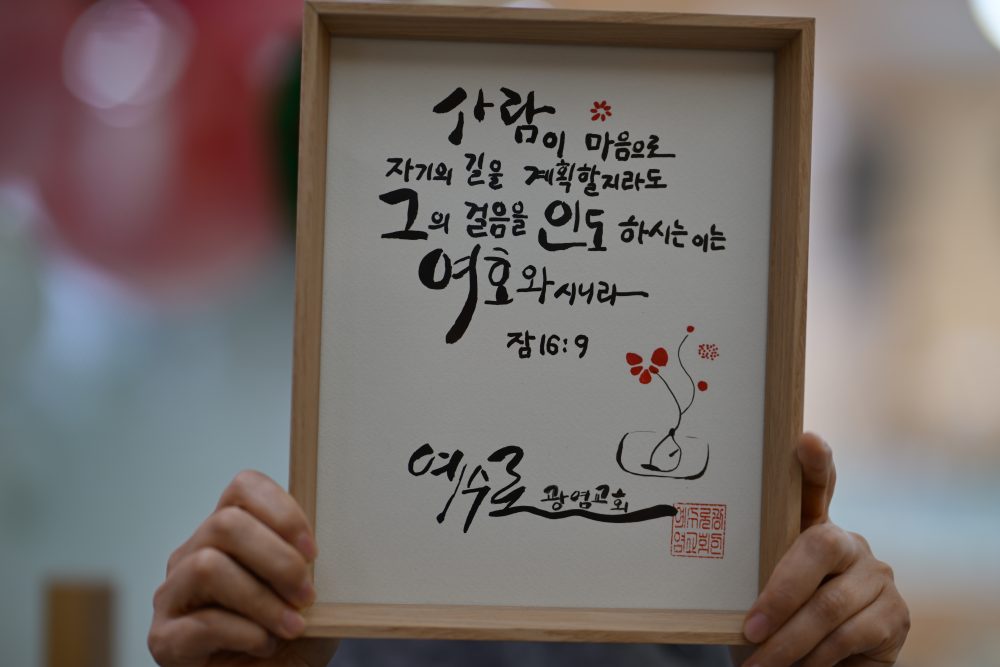 사람이 마음으로
자기의 길을 계획할지라도
그의 걸음을 인도 하시는 이는
여호와시니라
잠 16:9
예수로 광염교회